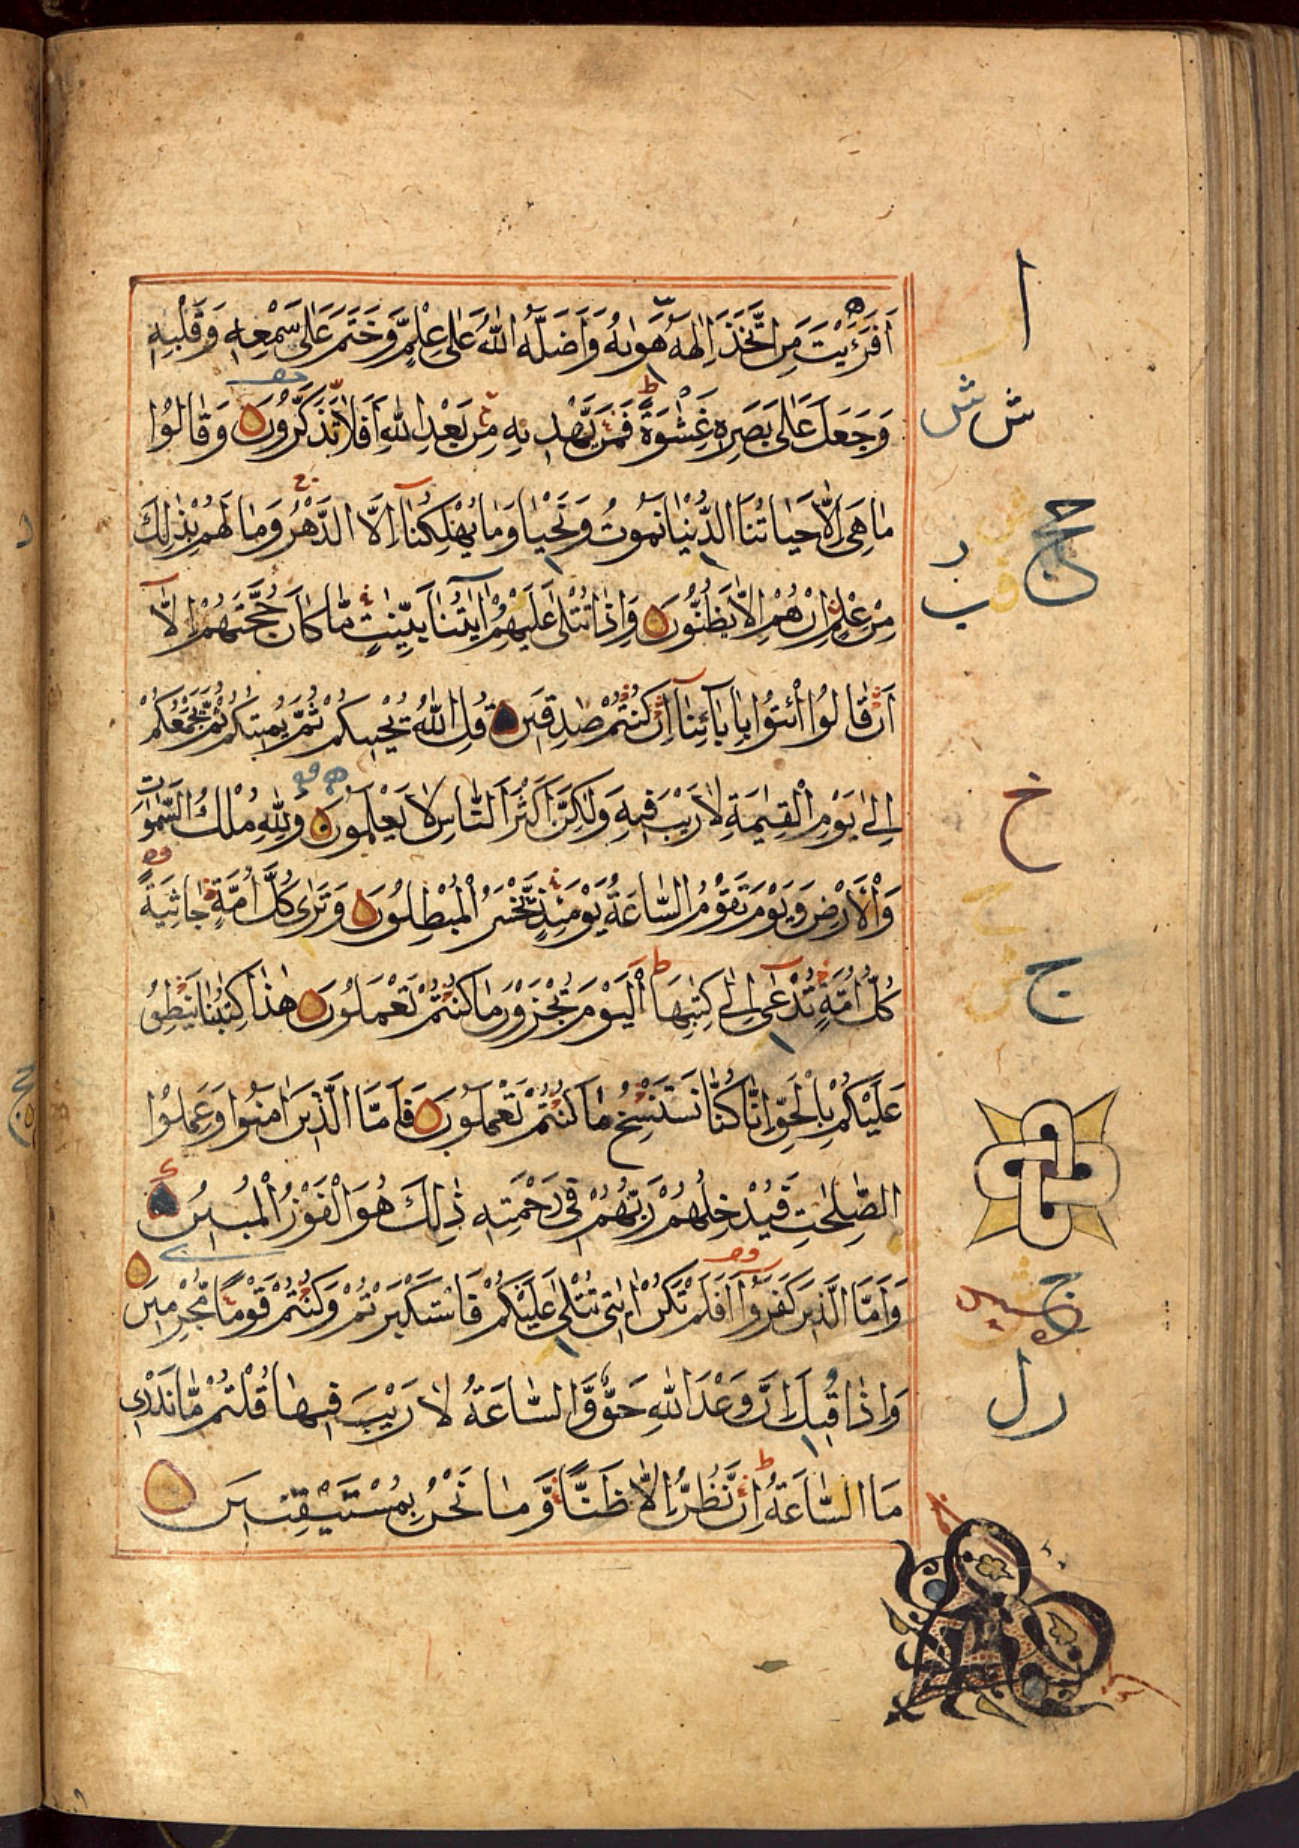 اَفَرَءَيْتَ مَنِ اتَّخَذَ اِلٰهَهُ هَوٰىهُ وَاَضَلَّهُ اللّٰهُ عَلٰى عِلْمٍ وَّخَتَمَ عَلٰى سَمْعِهٖ وَقَلْبِهٖ
وَجَعَلَ عَلٰى بَصَرِهٖ غِشٰوَةً فَمَنْ يَّهْدِيْهِ مِنْۢ بَعْدِ اللّٰهِ اَفَلَا تَذَكَّرُوْنَ وَقَالُوْا
مَا هِىَ اِلَّا حَيَاتُنَا الدُّنْيَا نَمُوْتُ وَنَحْيَا وَمَا يُهْلِكُنَآ اِلَّا الدَّهْرُ وَمَا لَهُمْ بِذٰلِكَ
مِنْ عِلْمٍ اِنْ هُمْ اِلَّا يَظُنُّوْنَ وَاِذَا تُتْلٰى عَلَيْهِمْ اٰيٰتُنَا بَيِّنٰتٍ مَّا كَانَ حُجَّتَهُمْ اِلَّآ
اَنْ قَالُوا ائْتُوْا بِاٰبَآئِنَآ اِنْ كُنْتُمْ صٰدِقِيْنَ قُلِ اللّٰهُ يُحْيِيْكُمْ ثُمَّ يُمِيْتُكُمْ ثُمَّ يَجْمَعُكُمْ
اِلٰى يَوْمِ الْقِيٰمَةِ لَا رَيْبَ فِيْهِ وَلٰكِنَّ اَكْثَرَ النَّاسِ لَا يَعْلَمُوْنَ وَلِلّٰهِ مُلْكُ السَّمٰوٰتِ
وَالْاَرْضِ وَيَوْمَ تَقُوْمُ السَّاعَةُ يَوْمَئِذٍ يَّخْسَرُ الْمُبْطِلُوْنَ وَتَرٰى كُلَّ اُمَّةٍ جَاثِيَةً
كُلُّ اُمَّةٍ تُدْعٰٓى اِلٰى كِتٰبِهَا اَلْيَوْمَ تُجْزَوْنَ مَا كُنْتُمْ تَعْمَلُوْنَ هٰذَا كِتٰبُنَا يَنْطِقُ
عَلَيْكُمْ بِالْحَقِّ اِنَّا كُنَّا نَسْتَنْسِخُ مَا كُنْتُمْ تَعْمَلُوْنَ فَاَمَّا الَّذِيْنَ اٰمَنُوْا وَعَمِلُوا
الصّٰلِحٰتِ فَيُدْخِلُهُمْ رَبُّهُمْ فِىْ رَحْمَتِهٖ ذٰلِكَ هُوَ الْفَوْزُ الْمُبِيْنُ
وَاَمَّا الَّذِيْنَ كَفَرُوْٓا اَفَلَمْ تَكُنْ اٰيٰتِىْ تُتْلٰى عَلَيْكُمْ فَاسْتَكْبَرْتُمْ وَكُنْتُمْ قَوْمًا مُّجْرِمِيْنَ
وَاِذَا قِيْلَ اِنَّ وَعْدَ اللّٰهِ حَقٌّ وَّالسَّاعَةُ لَا رَيْبَ فِيْهَا قُلْتُمْ مَّا نَدْرِىْ
مَا السَّاعَةُ اِنْ نَّظُنُّ اِلَّا ظَنًّا وَّمَا نَحْنُ بِمُسْتَيْقِنِيْنَ
ا
ش ش
ج ج
ر
ب ق
خ
ج
ج
ر ل